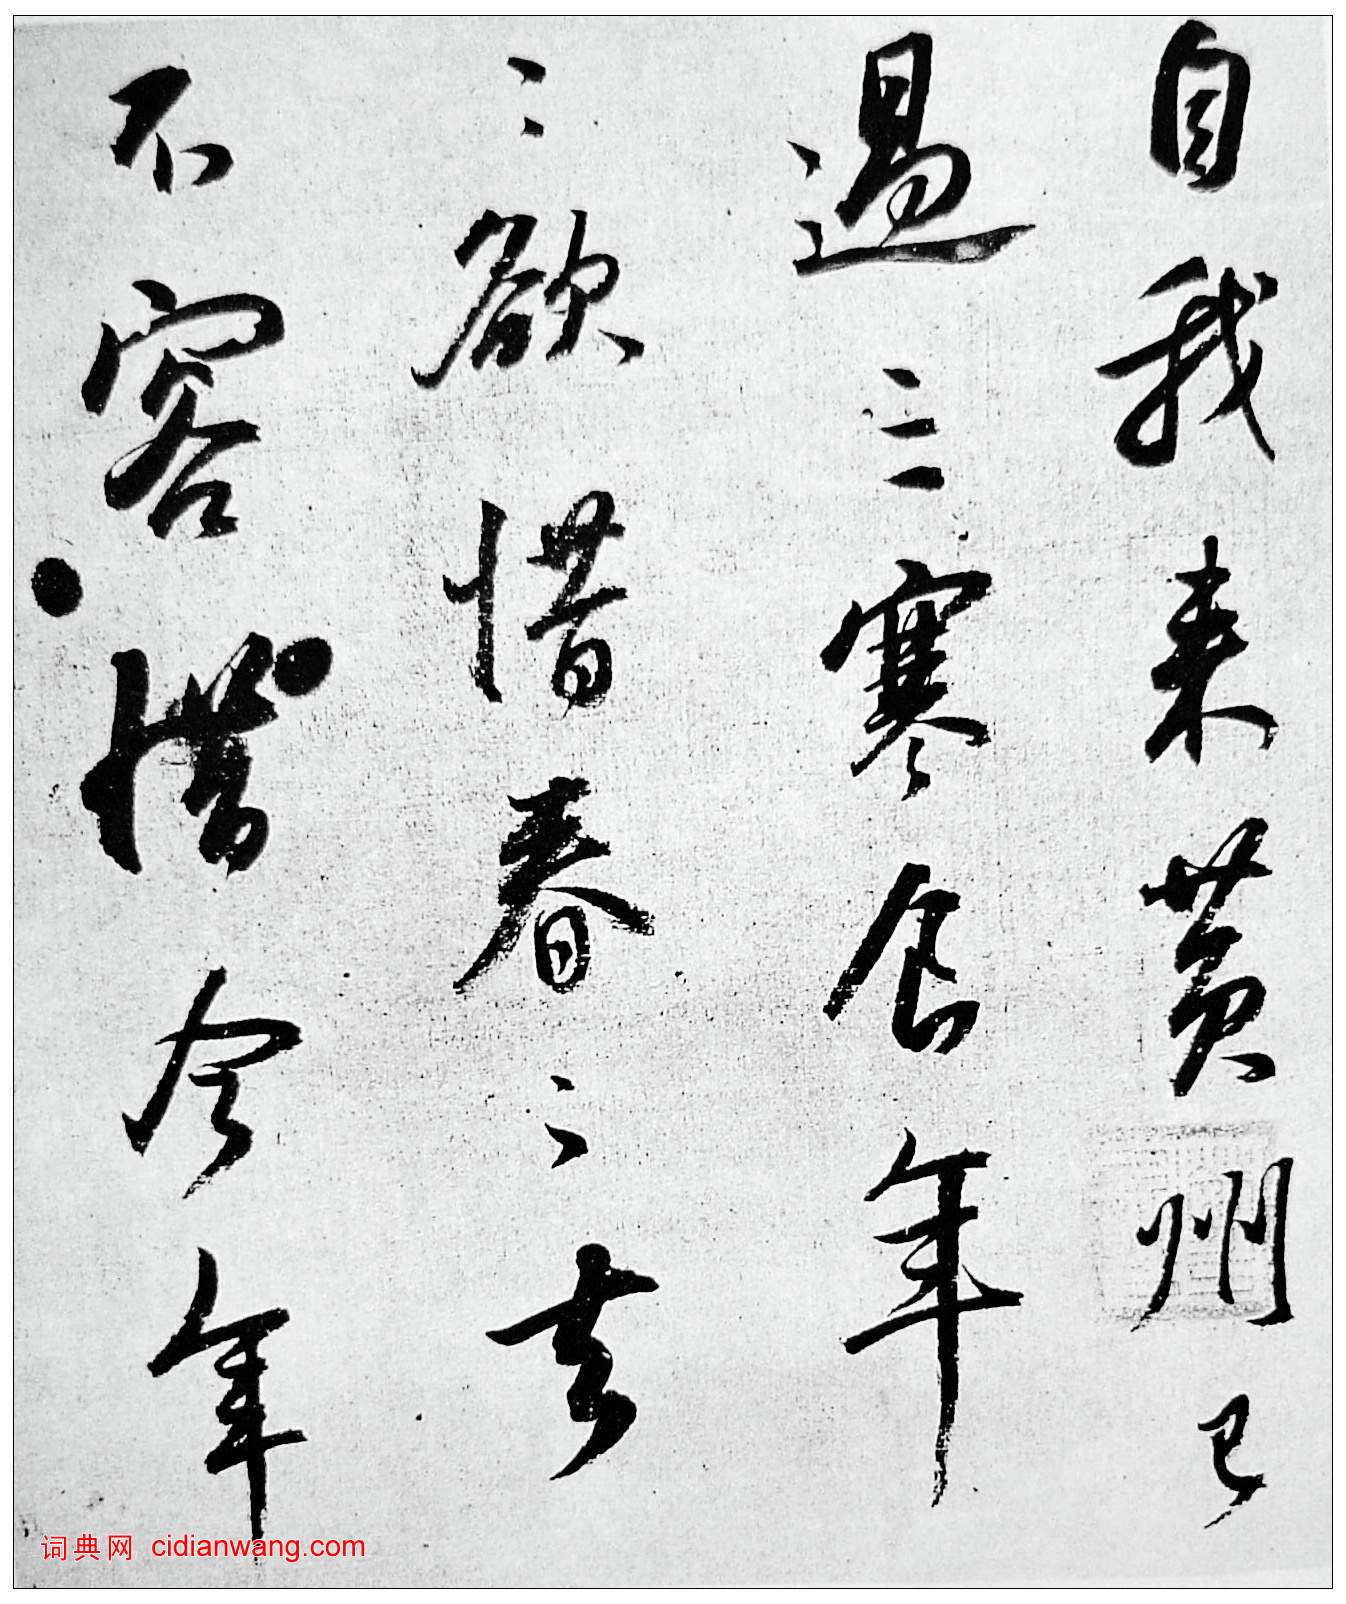 自我来黄州已
過三寒食年
〻欲惜春〻去
不容惜今年
词典网 cidianwang.com